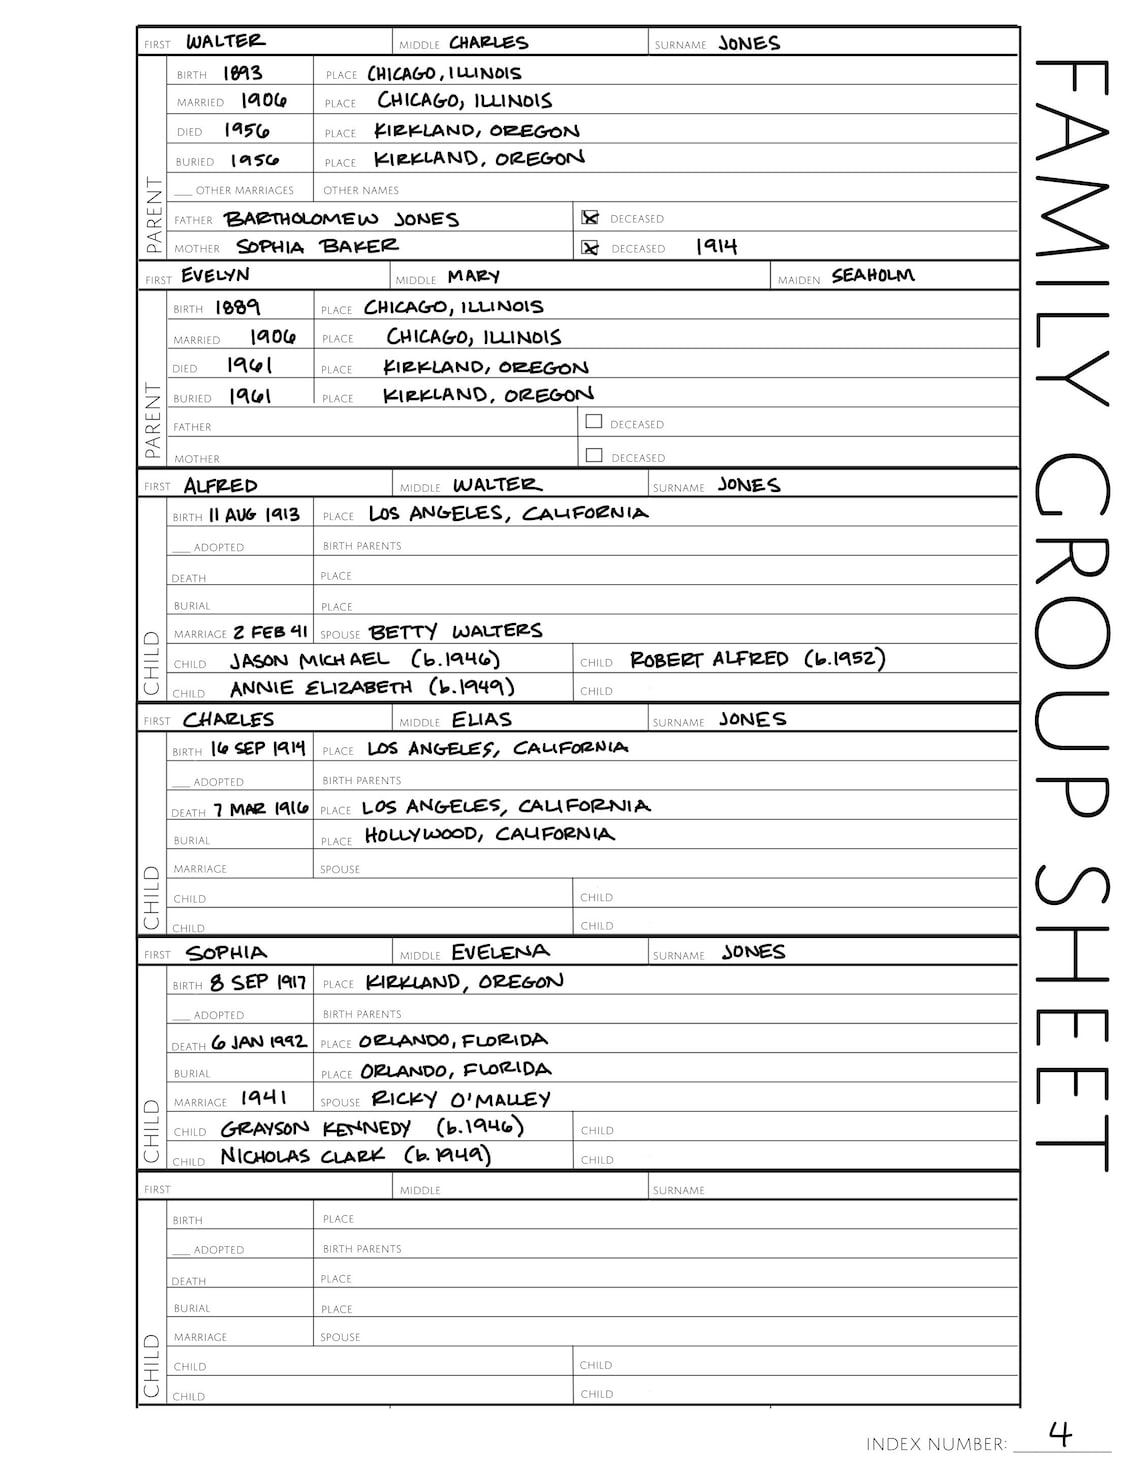 FIRST WALTER MIDDLE CHARLES SURNAME JONES
PARENT
BIRTH 1893 PLACE CHICAGO, ILLINOIS
MARRIED 1906 PLACE CHICAGO, ILLINOIS
DIED 1956 PLACE KIRKLAND, OREGON
BURIED 1956 PLACE KIRKLAND, OREGON
___ OTHER MARRIAGES OTHER NAMES
FATHER BARTHOLOMEW JONES ☒ DECEASED
MOTHER SOPHIA BAKER ☒ DECEASED 1914
FIRST EVELYN MIDDLE MARY MAIDEN SEAHOLM
PARENT
BIRTH 1889 PLACE CHICAGO, ILLINOIS
MARRIED 1906 PLACE CHICAGO, ILLINOIS
DIED 1961 PLACE KIRKLAND, OREGON
BURIED 1961 PLACE KIRKLAND, OREGON
FATHER ☐ DECEASED
MOTHER ☐ DECEASED
FIRST ALFRED MIDDLE WALTER SURNAME JONES
CHILD
BIRTH 11 AUG 1913 PLACE LOS ANGELES, CALIFORNIA
___ ADOPTED BIRTH PARENTS
DEATH PLACE
BURIAL PLACE
MARRIAGE 2 FEB 41 SPOUSE BETTY WALTERS
CHILD JASON MICHAEL (b.1946) CHILD ROBERT ALFRED (b.1952)
CHILD ANNIE ELIZABETH (b.1949) CHILD
FIRST CHARLES MIDDLE ELIAS SURNAME JONES
CHILD
BIRTH 16 SEP 1914 PLACE LOS ANGELES, CALIFORNIA
___ ADOPTED BIRTH PARENTS
DEATH 7 MAR 1916 PLACE LOS ANGELES, CALIFORNIA
BURIAL PLACE HOLLYWOOD, CALIFORNIA
MARRIAGE SPOUSE
CHILD CHILD
CHILD CHILD
FIRST SOPHIA MIDDLE EVELENA SURNAME JONES
CHILD
BIRTH 8 SEP 1917 PLACE KIRKLAND, OREGON
___ ADOPTED BIRTH PARENTS
DEATH 6 JAN 1992 PLACE ORLANDO, FLORIDA
BURIAL PLACE ORLANDO, FLORIDA
MARRIAGE 1941 SPOUSE RICKY O'MALLEY
CHILD GRAYSON KENNEDY (b.1946) CHILD
CHILD NICHOLAS CLARK (b.1949) CHILD
FIRST MIDDLE SURNAME
CHILD
BIRTH PLACE
___ ADOPTED BIRTH PARENTS
DEATH PLACE
BURIAL PLACE
MARRIAGE SPOUSE
CHILD CHILD
CHILD CHILD
FAMILY GROUP SHEET
INDEX NUMBER: 4